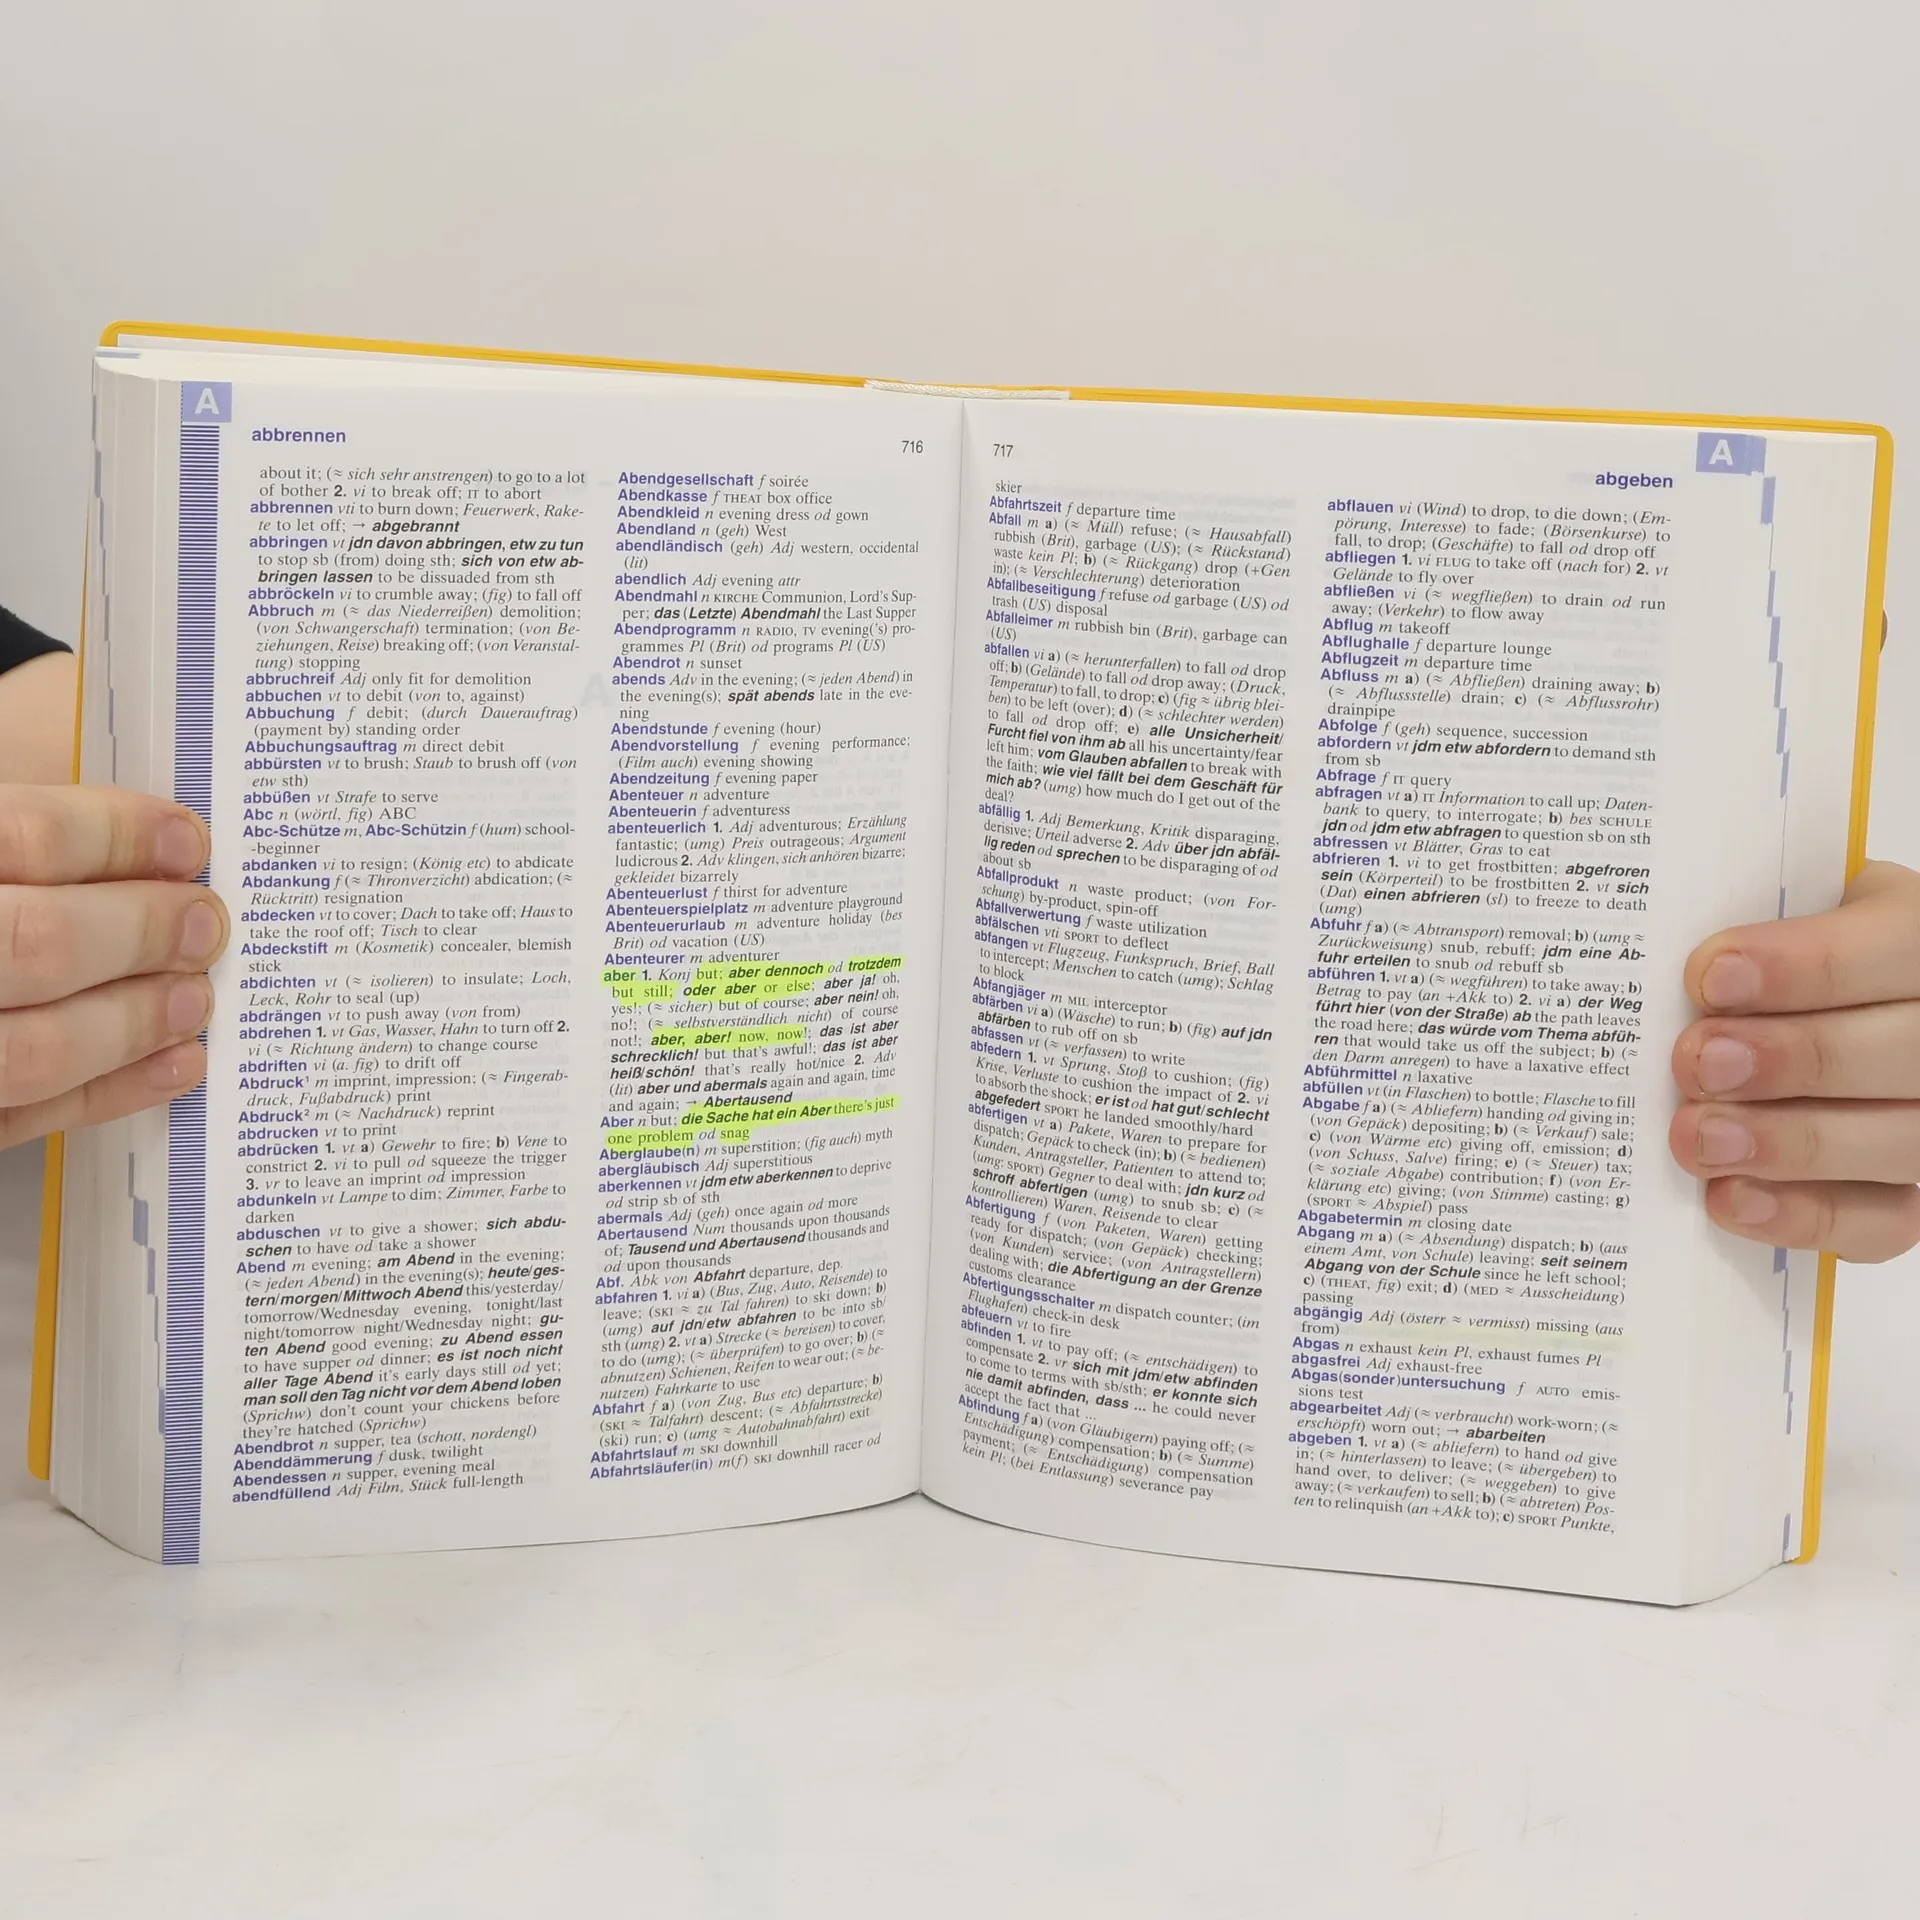 A
abbrennen
716
about it; (≈ sich sehr anstrengen) to go to a lot
of bother 2. vi to break off; IT to abort
abbrennen vti to burn down; Feuerwerk, Rake-
te to let off; → abgebrannt
abbringen vt jdn davon abbringen, etw zu tun
to stop sb (from) doing sth; sich von etw ab-
bringen lassen to be dissuaded from sth
abbröckeln vi to crumble away; (fig) to fall off
Abbruch m (≈ das Niederreißen) demolition;
(von Schwangerschaft) termination; (von Be-
ziehungen, Reise) breaking off; (von Veranstal-
tung) stopping
abbruchreif Adj only fit for demolition
abbuchen vt to debit (von to, against)
Abbuchung f debit; (durch Dauerauftrag)
(payment by) standing order
Abbuchungsauftrag m direct debit
abbürsten vt to brush; Staub to brush off (von
etw sth)
abbüßen vt Strafe to serve
Abc n (wörtl, fig) ABC
Abc-Schütze m, Abc-Schützin f (hum) school-
-beginner
abdanken vi to resign; (König etc) to abdicate
Abdankung f (≈ Thronverzicht) abdication; (≈
Rücktritt) resignation
abdecken vt to cover; Dach to take off; Haus to
take the roof off; Tisch to clear
Abdeckstift m (Kosmetik) concealer, blemish
stick
abdichten vt (≈ isolieren) to insulate; Loch,
Leck, Rohr to seal (up)
abdrängen vt to push away (von from)
abdrehen 1. vt Gas, Wasser, Hahn to turn off 2.
vi (≈ Richtung ändern) to change course
abdriften vi (a. fig) to drift off
Abdruck¹ m imprint, impression; (≈ Fingerab-
druck, Fußabdruck) print
Abdruck² m (≈ Nachdruck) reprint
abdrucken vt to print
abdrücken 1. vt a) Gewehr to fire; b) Vene to
constrict 2. vi to pull od squeeze the trigger
3. vr to leave an imprint od impression
abdunkeln vt Lampe to dim; Zimmer, Farbe to
darken
abduschen vt to give a shower; sich abdu-
schen to have od take a shower
Abend m evening; am Abend in the evening;
(≈ jeden Abend) in the evening(s); heute/ges-
tern/morgen/Mittwoch Abend this/yesterday/
tomorrow/Wednesday evening, tonight/last
night/tomorrow night/Wednesday night; gu-
ten Abend good evening; zu Abend essen
to have supper od dinner; es ist noch nicht
aller Tage Abend it's early days still od yet;
man soll den Tag nicht vor dem Abend loben
(Sprichw) don't count your chickens before
they're hatched (Sprichw)
Abendbrot n supper, tea (schott, nordengl)
Abenddämmerung f dusk, twilight
Abendessen n supper, evening meal
abendfüllend Adj Film, Stück full-length
Abendgesellschaft f soirée
Abendkasse f THEAT box office
Abendkleid n evening dress od gown
Abendland n (geh) West
abendländisch (geh) Adj western, occidental
(lit)
abendlich Adj evening attr
Abendmahl n KIRCHE Communion, Lord's Sup-
per; das (Letzte) Abendmahl the Last Supper
Abendprogramm n RADIO, TV evening('s) pro-
grammes Pl (Brit) od programs Pl (US)
Abendrot n sunset
abends Adv in the evening; (≈ jeden Abend) in
the evening(s); spät abends late in the eve-
ning
Abendstunde f evening (hour)
Abendvorstellung f evening performance;
(Film auch) evening showing
Abendzeitung f evening paper
Abenteuer n adventure
Abenteuerin f adventuress
abenteuerlich 1. Adj adventurous; Erzählung
fantastic; (umg) Preis outrageous; Argument
ludicrous 2. Adv klingen, sich anhören bizarre;
gekleidet bizarrely
Abenteuerlust f thirst for adventure
Abenteuerspielplatz m adventure playground
Abenteuerurlaub m adventure holiday (bes
Brit) od vacation (US)
Abenteurer m adventurer
aber 1. Konj but; aber dennoch od trotzdem
but still; oder aber or else; aber ja! oh,
yes!; (≈ sicher) but of course; aber nein! oh,
no!; (≈ selbstverständlich nicht) of course
not!; aber, aber! now, now!; das ist aber
schrecklich! but that's awful!; das ist aber
heiß/schön! that's really hot/nice 2. Adv
(lit) aber und abermals again and again, time
and again; → Abertausend
Aber n but; die Sache hat ein Aber there's just
one problem od snag
Aberglaube(n) m superstition; (fig auch) myth
abergläubisch Adj superstitious
aberkennen vt jdm etw aberkennen to deprive
od strip sb of sth
abermals Adj (geh) once again od more
Abertausend Num thousands upon thousands
of; Tausend und Abertausend thousands and
od upon thousands
Abf. Abk von Abfahrt departure, dep.
abfahren 1. vi a) (Bus, Zug, Auto, Reisende) to
leave; (SKI ≈ zu Tal fahren) to ski down; b)
(umg) auf jdn/etw abfahren to be into sb/
sth (umg) 2. vt a) Strecke (≈ bereisen) to cover,
to do (umg); (≈ überprüfen) to go over; b) (≈
abnutzen) Schienen, Reifen to wear out; (≈ be-
nutzen) Fahrkarte to use
Abfahrt f a) (von Zug, Bus etc) departure; b)
(SKI ≈ Talfahrt) descent; (≈ Abfahrtsstrecke)
(ski) run; c) (umg ≈ Autobahnabfahrt) exit
Abfahrtslauf m SKI downhill
Abfahrtsläufer(in) m(f) SKI downhill racer od
717
A
abgeben
skier
Abfahrtszeit f departure time
Abfall m a) (≈ Müll) refuse; (≈ Hausabfall)
rubbish (Brit), garbage (US); (≈ Rückstand)
waste kein Pl; b) (≈ Rückgang) drop (+Gen
in); (≈ Verschlechterung) deterioration
Abfallbeseitigung f refuse od garbage (US) od
trash (US) disposal
Abfalleimer m rubbish bin (Brit), garbage can
(US)
abfallen vi a) (≈ herunterfallen) to fall od drop
off; b) (Gelände) to fall od drop away; (Druck,
Temperatur) to fall, to drop; c) (fig ≈ übrig blei-
ben) to be left (over); d) (≈ schlechter werden)
to fall od drop off; e) alle Unsicherheit/
Furcht fiel von ihm ab all his uncertainty/fear
left him; vom Glauben abfallen to break with
the faith; wie viel fällt bei dem Geschäft für
mich ab? (umg) how much do I get out of the
deal?
abfällig 1. Adj Bemerkung, Kritik disparaging,
derisive; Urteil adverse 2. Adv über jdn abfäl-
lig reden od sprechen to be disparaging of od
about sb
Abfallprodukt n waste product; (von For-
schung) by-product, spin-off
Abfallverwertung f waste utilization
abfälschen vti SPORT to deflect
abfangen vt Flugzeug, Funkspruch, Brief, Ball
to intercept; Menschen to catch (umg); Schlag
to block
Abfangjäger m MIL interceptor
abfärben vi a) (Wäsche) to run; b) (fig) auf jdn
abfärben to rub off on sb
abfassen vt (≈ verfassen) to write
abfedern 1. vt Sprung, Stoß to cushion; (fig)
Krise, Verluste to cushion the impact of 2. vi
to absorb the shock; er ist od hat gut/schlecht
abgefedert SPORT he landed smoothly/hard
abfertigen vt a) Pakete, Waren to prepare for
dispatch; Gepäck to check (in); b) (≈ bedienen)
Kunden, Antragsteller, Patienten to attend to;
(umg; SPORT) Gegner to deal with; jdn kurz od
schroff abfertigen (umg) to snub sb; c) (≈
kontrollieren) Waren, Reisende to clear
Abfertigung f (von Paketen, Waren) getting
ready for dispatch; (von Gepäck) checking;
(von Kunden) service; (von Antragstellern)
dealing with; die Abfertigung an der Grenze
customs clearance
Abfertigungsschalter m dispatch counter; (im
Flughafen) check-in desk
abfeuern vt to fire
abfinden 1. vt to pay off; (≈ entschädigen) to
compensate 2. vr sich mit jdm/etw abfinden
to come to terms with sb/sth; er konnte sich
nie damit abfinden, dass ... he could never
accept the fact that ...
Abfindung f a) (von Gläubigern) paying off; (≈
Entschädigung) compensation; b) (≈ Summe)
payment; (≈ Entschädigung) compensation
kein Pl; (bei Entlassung) severance pay
abflauen vi (Wind) to drop, to die down; (Em-
pörung, Interesse) to fade; (Börsenkurse) to
fall, to drop; (Geschäfte) to fall od drop off
abfliegen 1. vi FLUG to take off (nach for) 2. vt
Gelände to fly over
abfließen vi (≈ wegfließen) to drain od run
away; (Verkehr) to flow away
Abflug m takeoff
Abflughalle f departure lounge
Abflugzeit m departure time
Abfluss m a) (≈ Abfließen) draining away; b)
(≈ Abflussstelle) drain; c) (≈ Abflussrohr)
drainpipe
Abfolge f (geh) sequence, succession
abfordern vt jdm etw abfordern to demand sth
from sb
Abfrage f IT query
abfragen vt a) IT Information to call up; Daten-
bank to query, to interrogate; b) bes SCHULE
jdn od jdm etw abfragen to question sb on sth
abfressen vt Blätter, Gras to eat
abfrieren 1. vi to get frostbitten; abgefroren
sein (Körperteil) to be frostbitten 2. vt sich
(Dat) einen abfrieren (sl) to freeze to death
(umg)
Abfuhr f a) (≈ Abtransport) removal; b) (umg ≈
Zurückweisung) snub, rebuff; jdm eine Ab-
fuhr erteilen to snub od rebuff sb
abführen 1. vt a) (≈ wegführen) to take away; b)
Betrag to pay (an +Akk to) 2. vi a) der Weg
führt hier (von der Straße) ab the path leaves
the road here; das würde vom Thema abfüh-
ren that would take us off the subject; b) (≈
den Darm anregen) to have a laxative effect
Abführmittel n laxative
abfüllen vt (in Flaschen) to bottle; Flasche to fill
Abgabe f a) (≈ Abliefern) handing od giving in;
(von Gepäck) depositing; b) (≈ Verkauf) sale;
c) (von Wärme etc) giving off, emission; d)
(von Schuss, Salve) firing; e) (≈ Steuer) tax;
(≈ soziale Abgabe) contribution; f) (von Er-
klärung etc) giving; (von Stimme) casting; g)
(SPORT ≈ Abspiel) pass
Abgabetermin m closing date
Abgang m a) (≈ Absendung) dispatch; b) (aus
einem Amt, von Schule) leaving; seit seinem
Abgang von der Schule since he left school;
c) (THEAT, fig) exit; d) (MED ≈ Ausscheidung)
passing
abgängig Adj (österr ≈ vermisst) missing (aus
from)
Abgas n exhaust kein Pl, exhaust fumes Pl
abgasfrei Adj exhaust-free
Abgas(sonder)untersuchung f AUTO emis-
sions test
abgearbeitet Adj (≈ verbraucht) work-worn; (≈
erschöpft) worn out; → abarbeiten
abgeben 1. vt a) (≈ abliefern) to hand od give
in; (≈ hinterlassen) to leave; (≈ übergeben) to
hand over, to deliver; (≈ weggeben) to give
away; (≈ verkaufen) to sell; b) (≈ abtreten) Pos-
ten to relinquish (an +Akk to); c) SPORT Punkte,